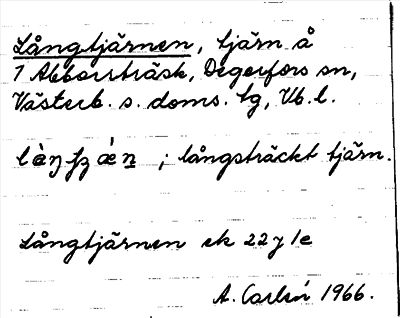 Långtjärnen, tjärn å
1 Abborrträsk, Degerfors sn,
Västerb. s. doms. tg, Vb. l.
; långsträckt tjärn.
Långtjärnen ek 22J 1e
A. 1966.